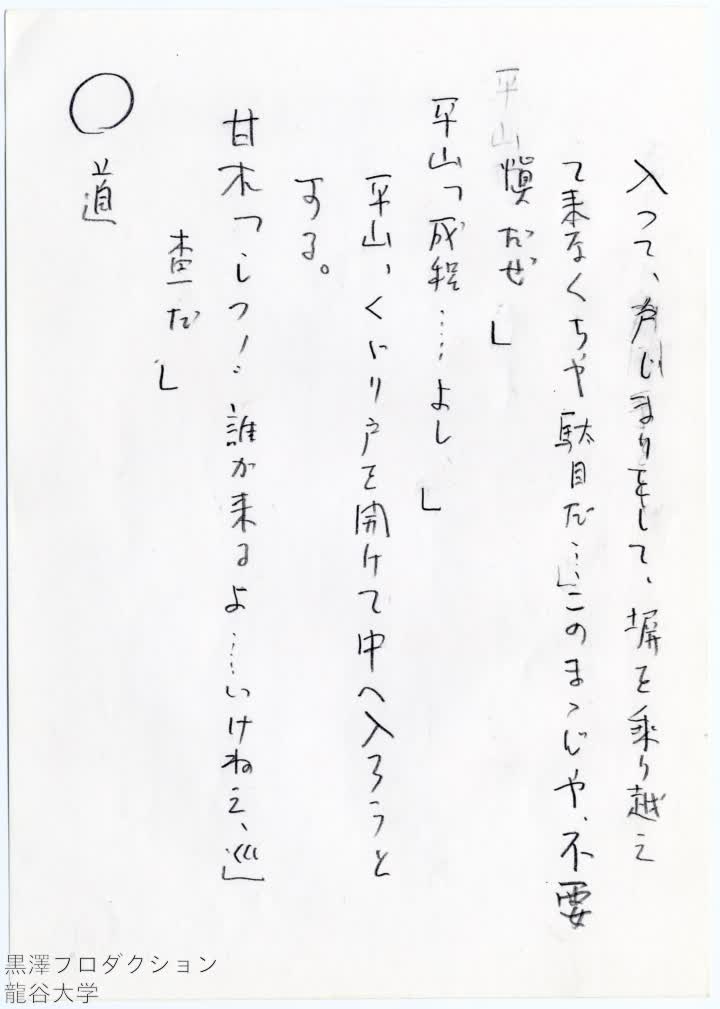 入つて、戸じまりをして、塀を乗り越え
て来なくちや駄目だ……」このまゝぢや、不要
平山
慎だぜ」
平山「成程……よし」
平山、くゞり戸を開けて中へ入ろうと
する。
甘木「しつ!……誰か来るよ……いけねえ、巡
査だ」
○道
黒澤プロダクション
龍谷大学